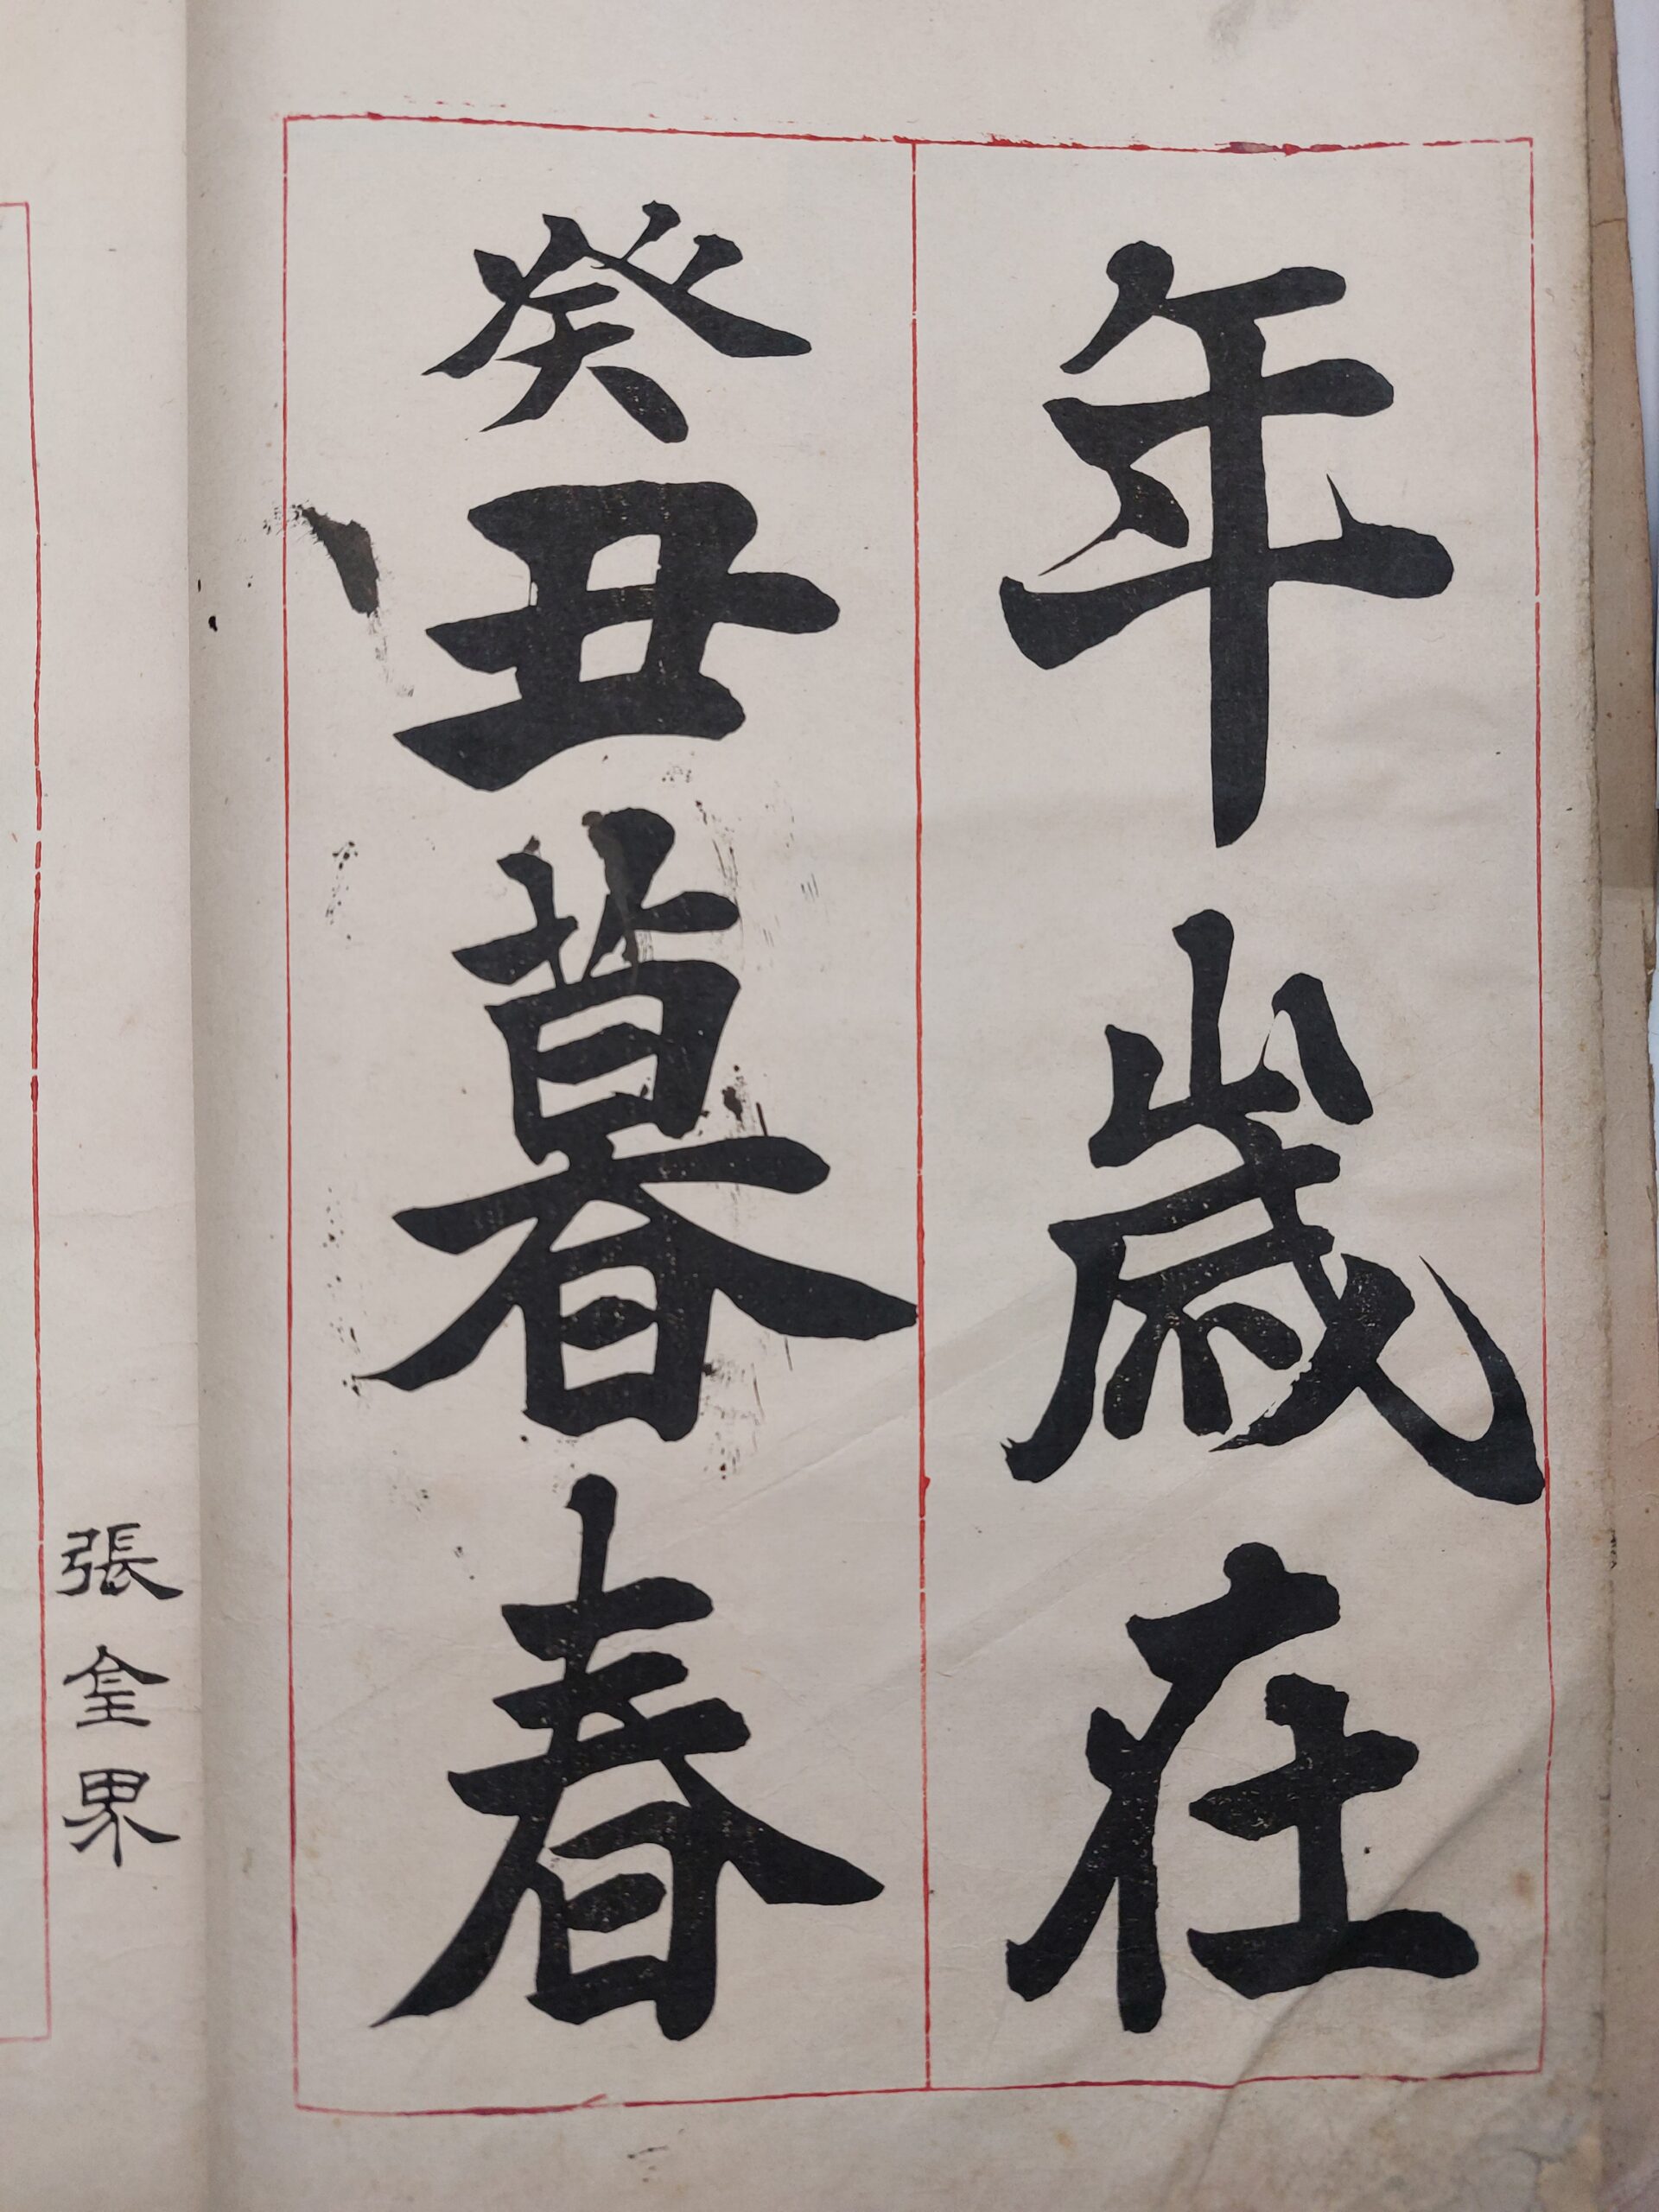 年歲在
癸丑暮春
張金界